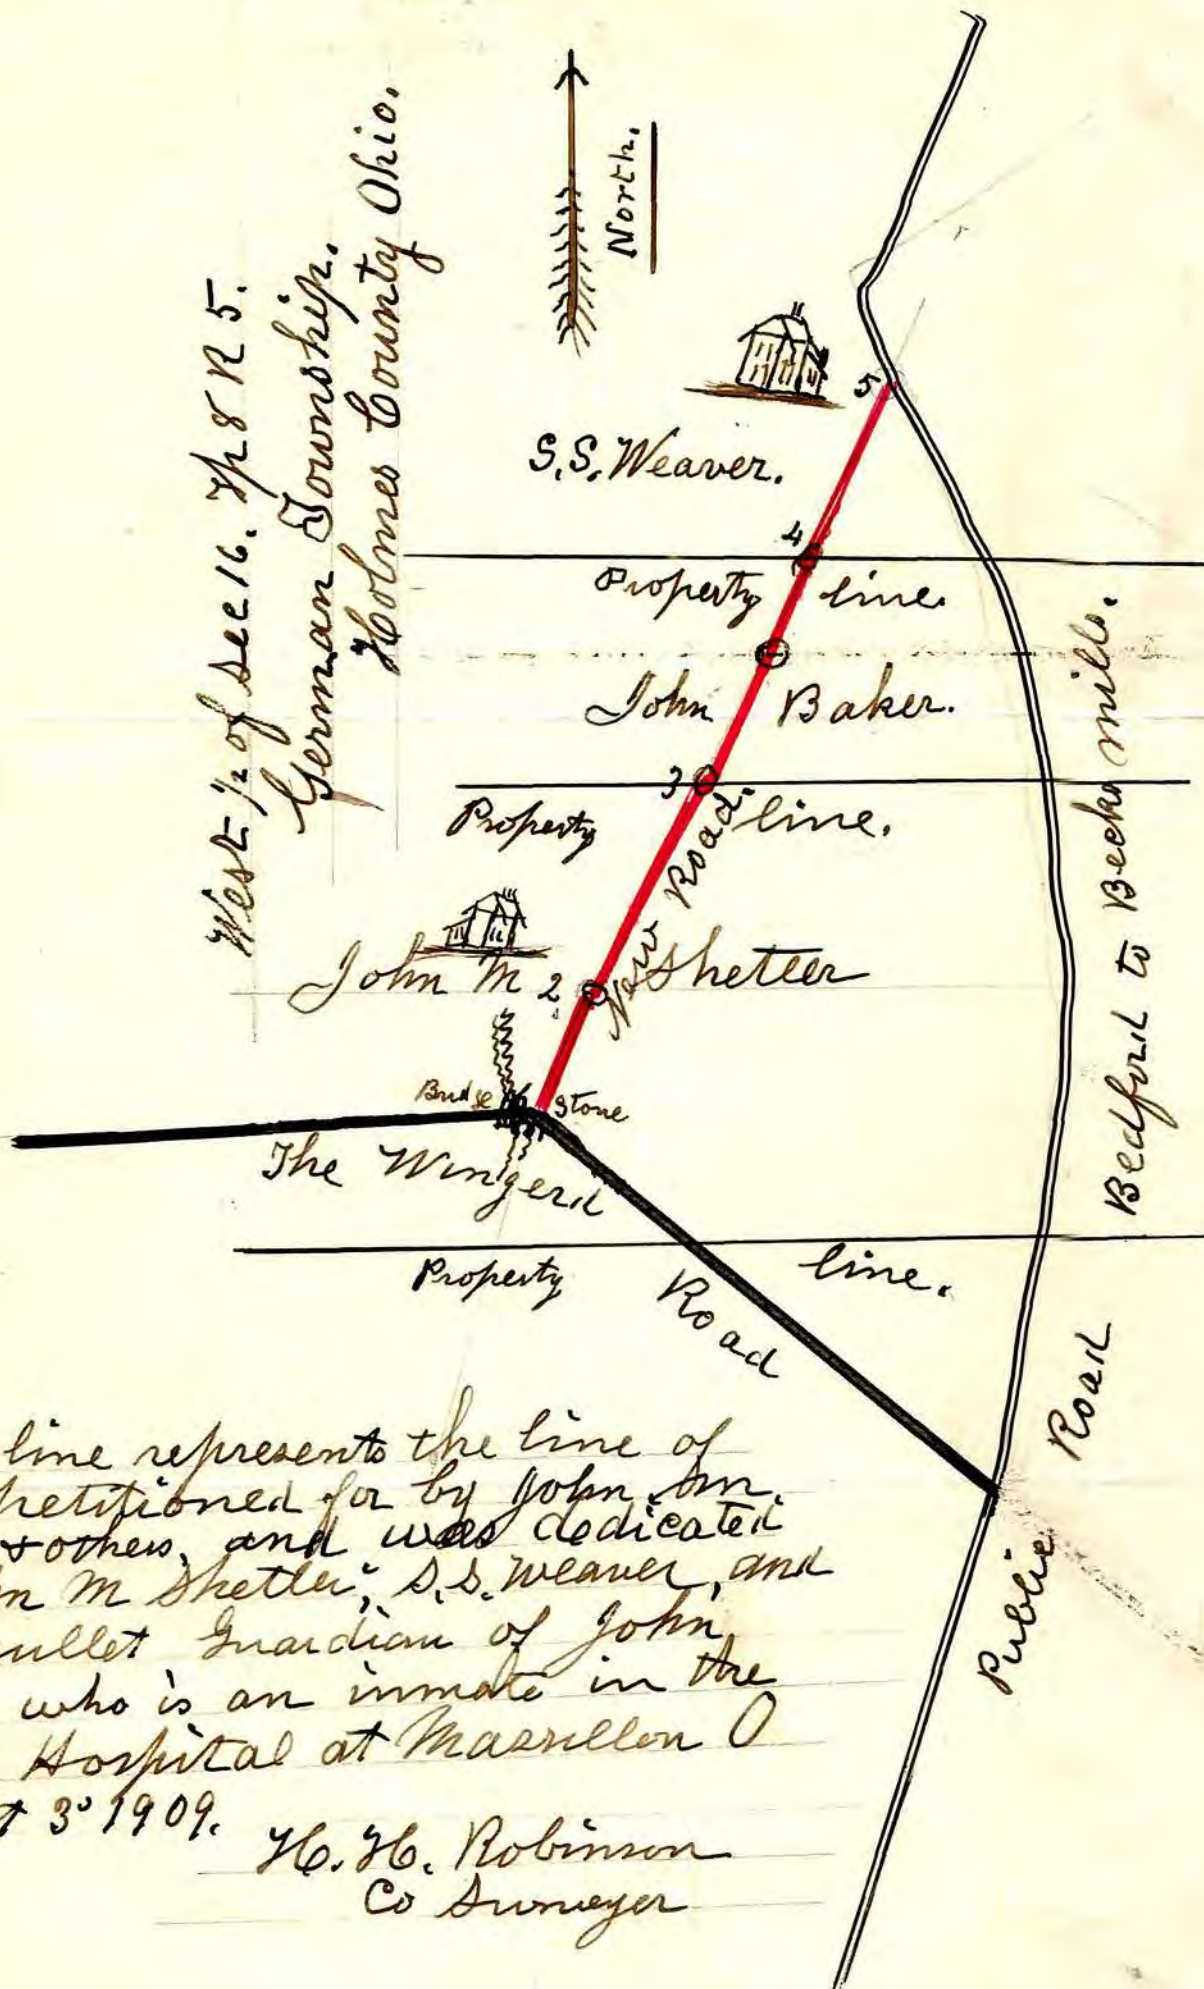 West ½ of Sec 16. Tp 8 R 5.
German Township.
Holmes County Ohio.
North.
5
S.S. Weaver.
4
Property line.
John Baker.
3
Property line.
New Road.
John M Shetler
2
Bridge Stone
The Wingerd Road
Property line.
Public Road Bedford to Becks mills.
line represents the line of
petitioned for by John M.
& others, and was dedicated
n M Shetler, S.S. Weaver, and
ullet Guardian of John
who is an inmate in the
Hospital at Massillon O
t 3 1909.
H. H. Robinson
Co Surveyer